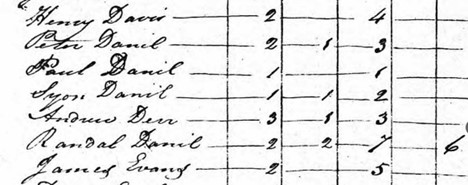 Henry Davis 2 4
Peter Danil 2 1 3
Paul Danil 1 1
Syon Danil 1 1 2
Andrew Derr 3 1 3
Randal Danil 2 2 7 6
James Evans 2 5